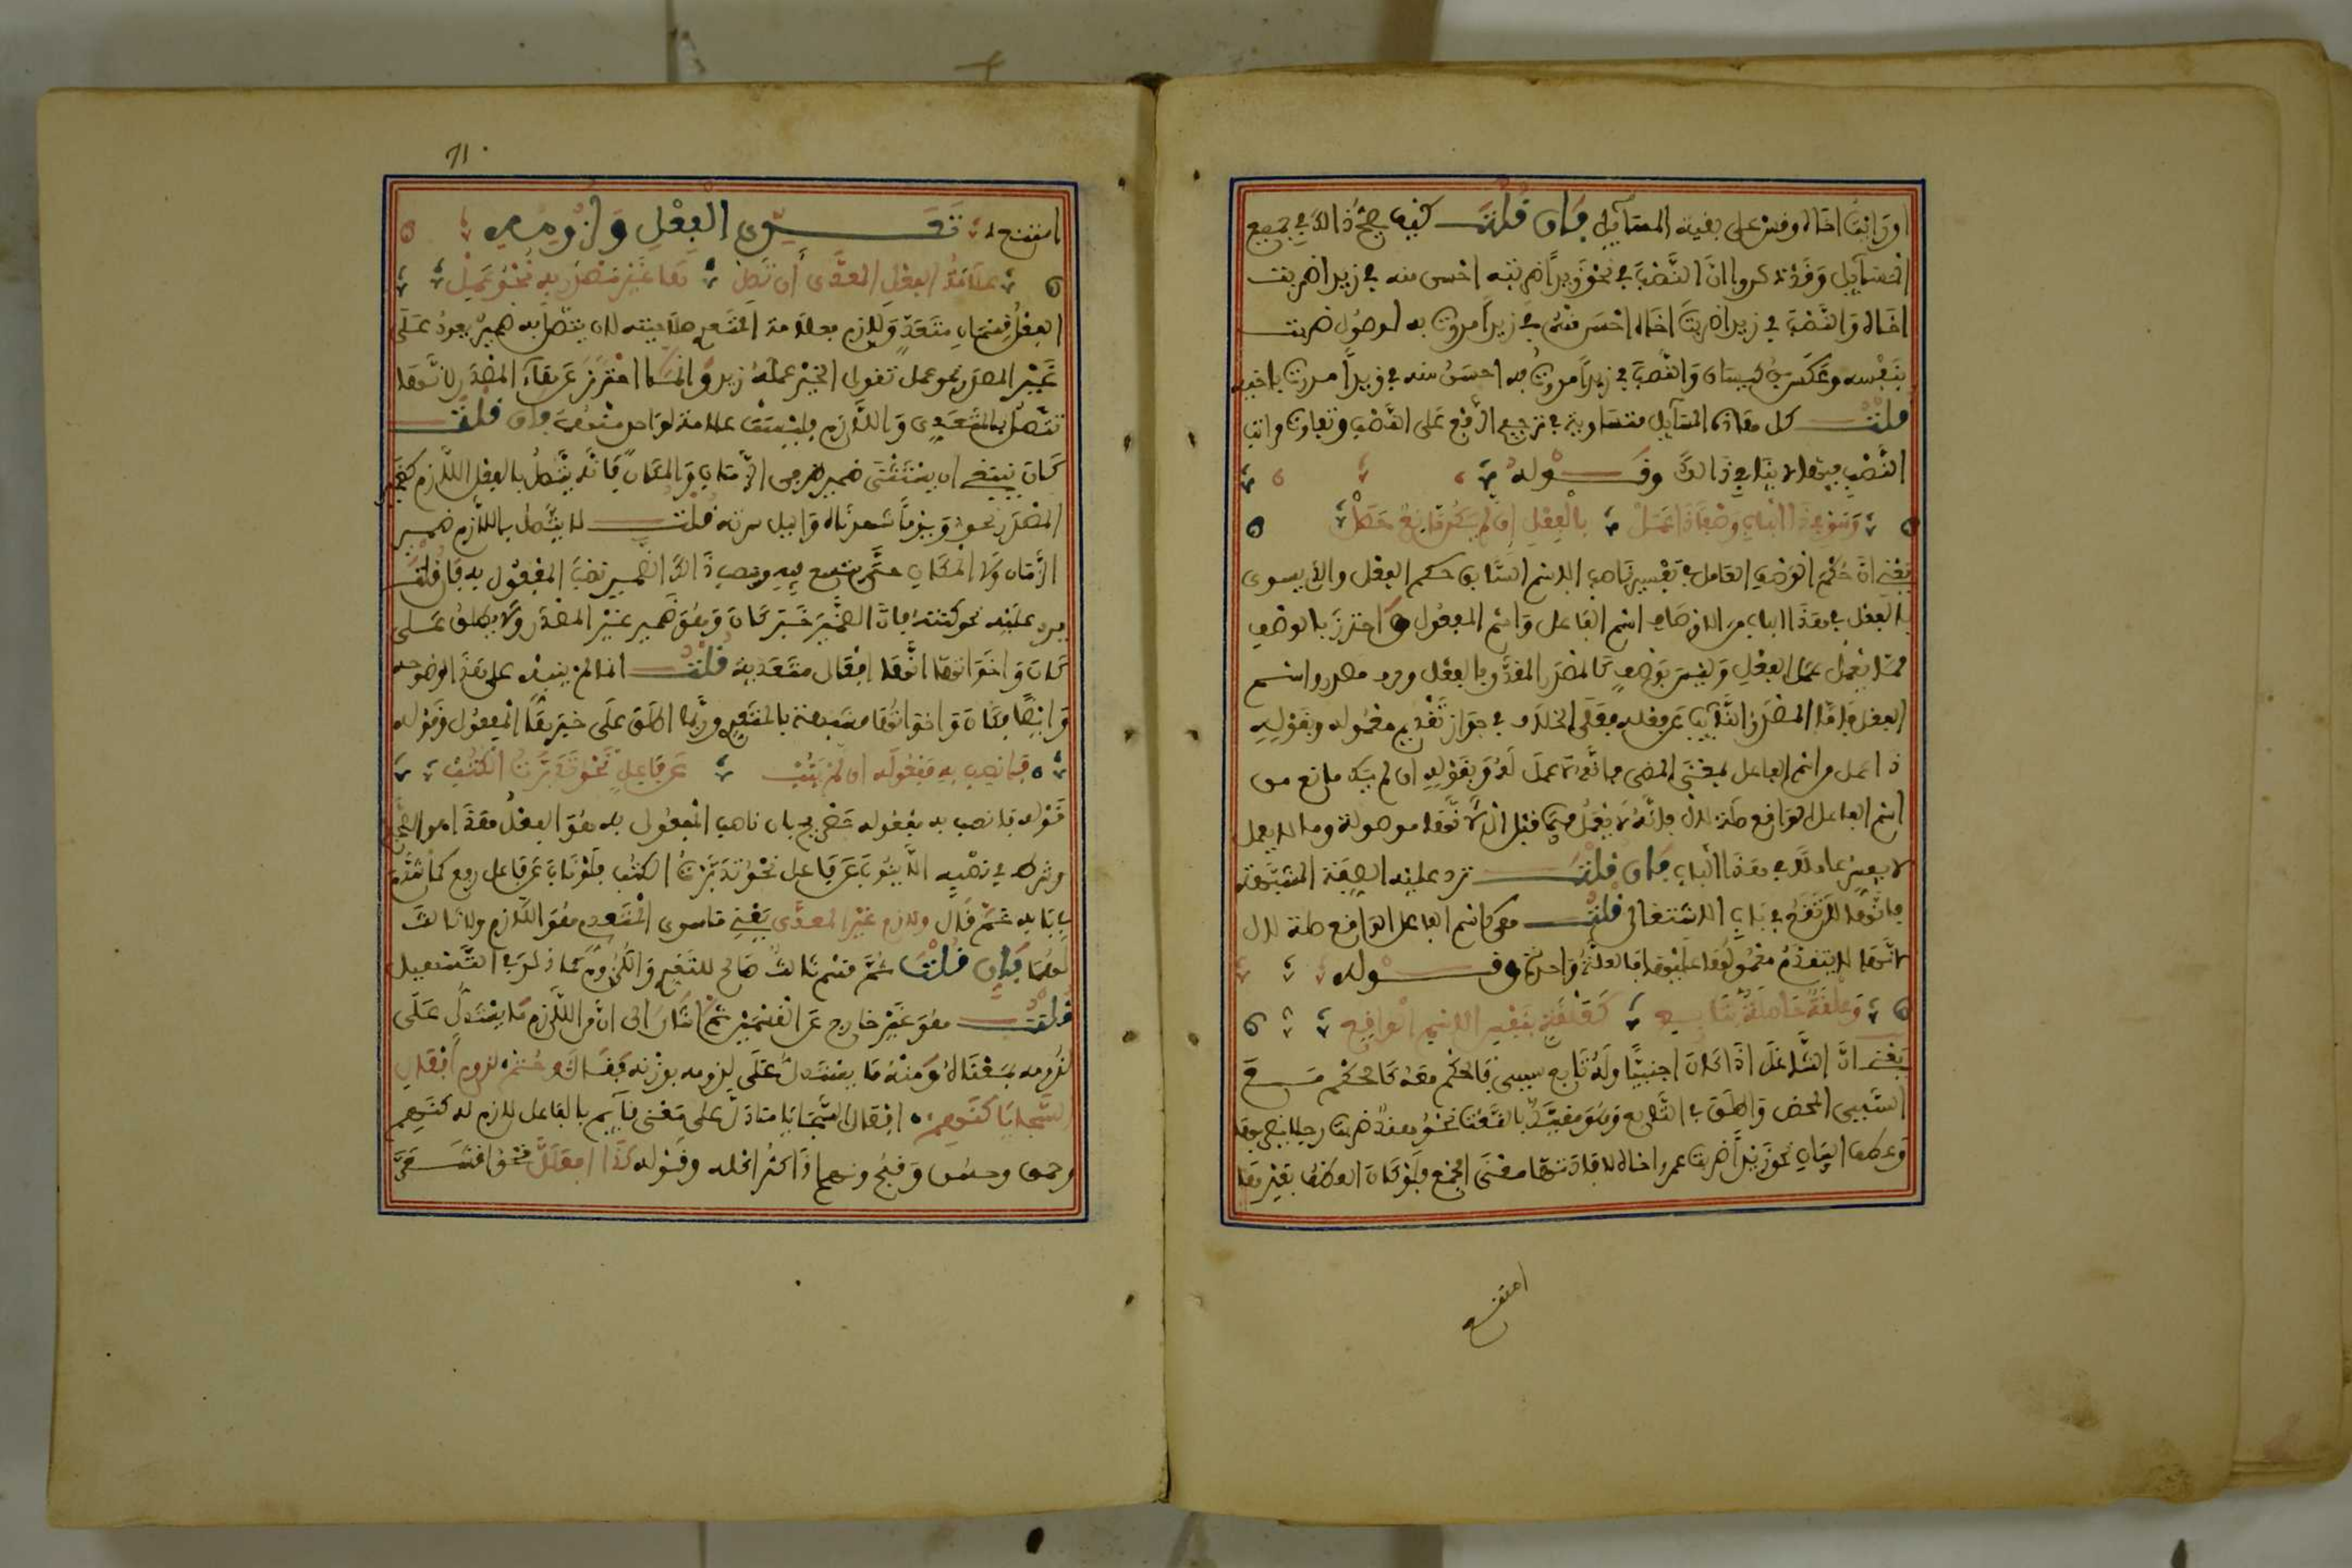 او رأيت أخاه وقس على بقية المسائل فإن قلت كيف يصح ذالك في جميع
المسائل وقد ذكروا ان النصب في نحو زيدا ضربته احسن منه في زيدا ضربت
اخاه والنصب في زيدا ضربت اخاه احسن منه في زيدا مررت به لوصول ضربت
بنفسه وعكس بن كيسان والنصب في زيدا مررت به احسن منه في زيدا مررت باخيه
قلت كل هاذه المسائل متساوية في ترجيح الرفع على النصب وتفاوت مراتب
النصب فيها لا ينافي ذالك وقوله
وسو في ذا الباب وصفا ذا عمل بالفعل إن لم يك مانع حصل
يعني ان حكم الوصف العامل في تفسير ناصب الاسم السابق حكم الفعل والذي يسوى
بالفعل في هذا الباب من الاوصاف اسم الفاعل واسم المفعول واحترز بالوصف
مما يعمل عمل الفعل وليس بوصف كالمصدر المقدر بالفعل وحرف مصدر واسم
الفعل فاما المصدر النائب عن فعله فعلى الخلاف في جواز تقديم معموله وبقوله
ذا عمل من اسم الفاعل بمعنى المضي فانه لا عمل له وبقوله ان لم يك مانع من
اسم الفاعل الواقع صلة لال فانه لا يعمل فيما قبل ال لانها موصولة وما لا يعمل
لا يفسر عاملا في هذا الباب فإن قلت ترد عليه الصفة المشبهة
فانها لا تقع في باب الاشتغال قلت هي كاسم الفاعل الواقع صلة لال
لانها لا يتقدم معمولها عليها فالعلة واحدة وقوله
وعلقة حاصلة بتابع كعلقة بنفس الاسم الواقع
يعني ان الشاغل اذا كان اجنبيا وله تابع سببي فالحكم معه كالحكم مع
السببي المحض واطلق في التابع وهو مقيد بالنعت نحو هند ضربت رجلا يحبها
وعطف البيان نحو زيدا ضربت عمرا اخاه لافادتها معنى الجمع ولو كان العطف بغيرها
امتنع
71
امتنع تعدي الفعل ولزومه
علامة الفعل المعدى أن تصل ها غير مصدر به نحو عمل
الفعل قسمان متعد ولازم فعلامة المتعدي صلاحيته لان يتصل به ضمير يعود على
غير المصدر نحو عمل تقول الخير عمله زيد وانما احترز عن هاء المصدر لانها
تتصل بالمتعدي واللازم فليست علامة لواحد منهما فإن قلت
كان ينبغي ان يستثنى ضمير ظرفي الزمان والمكان فانه يتصل بالفعل اللازم كضمير
المصدر نحو ويوما شهدناه والميل سرته قلت لا يتصل باللازم ضمير
الزمان ولا المكان حتى يتسع فيه وينصب ذالك الضمير نصب المفعول به فإن قلت
يرد عليه نحو كنته فان الضمير خبر كان وهو ضمير غير المصدر ولا يطلق على
كان واخواتها انها افعال متعدية قلت انما لم ينبه على هذا لوضوحه
وايضا فكان واخواتها مشبهة بالمتعدي وربما اطلق على خبرها المفعول وقوله
فانصب به مفعوله ان لم ينب عن فاعل نحو تدبرت الكتب
قوله فانصب به مفعوله تصريح بان ناصب المفعول به هو الفعل هذا هو الصحيح
وشرط في نصبه الا ينوب عن فاعل نحو تدبرت الكتب فلو ناب عن فاعل رفع كما تقدم
في بابه ثم قال ولازم غير المعدى يعني ما سوى المتعدي هو اللازم ولا ثالث
لهما فإن قلت ثم قسم ثالث صالح للتعدي واللزوم كما ذكر في التسهيل
قلت هو غير خارج عن القسمين ثم اشار الى ان من اللازم ما يستدل على
لزومه بمعناه ومنه ما يستدل على لزومه بوزنه فقال وحتم لزوم أفعال
السجايا كنهم افعال السجايا ما دل على معنى قائم بالفاعل لازم له كنهم
وحمق وحسن وقبح ونهم اذا كثر اكله وقوله كذا افعلل نحو اقشعر